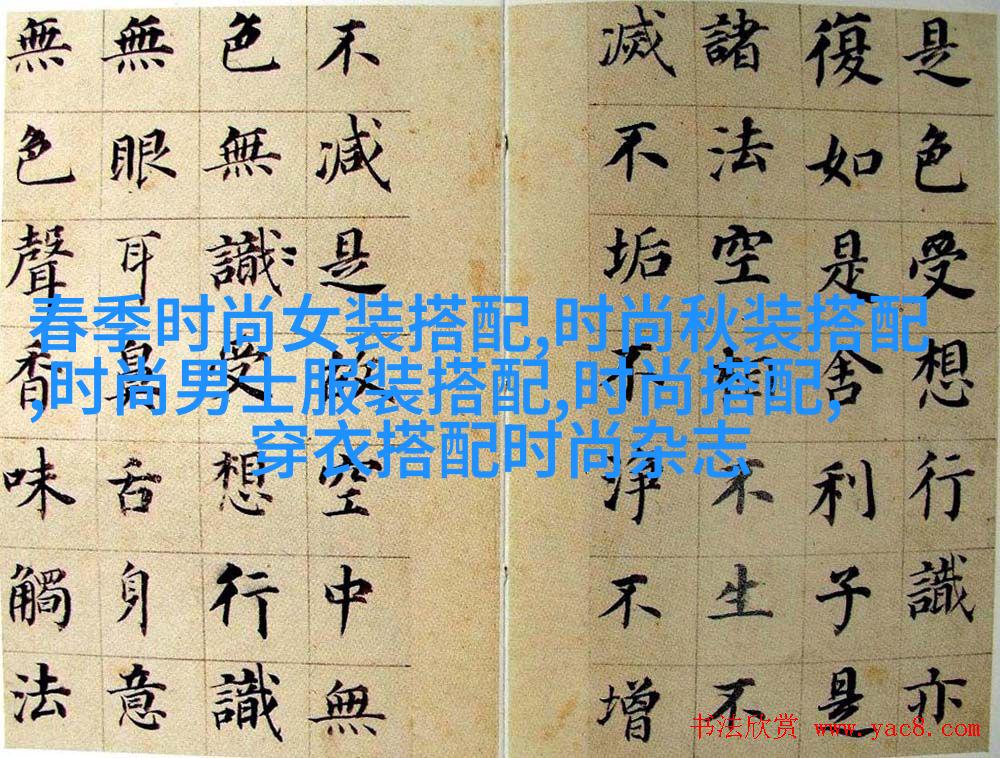 是色受想行識亦
復如是舍利子是
諸法空相不生不
滅不垢不淨不增
不減是故空中無
色無識受想行識
無眼耳鼻舌身意
無色聲香味觸法
春季时尚女装搭配,时尚秋装搭配
,时尚男士服装搭配,时尚搭配,
穿衣搭配时尚杂志
书法欣赏 www.yac8.com